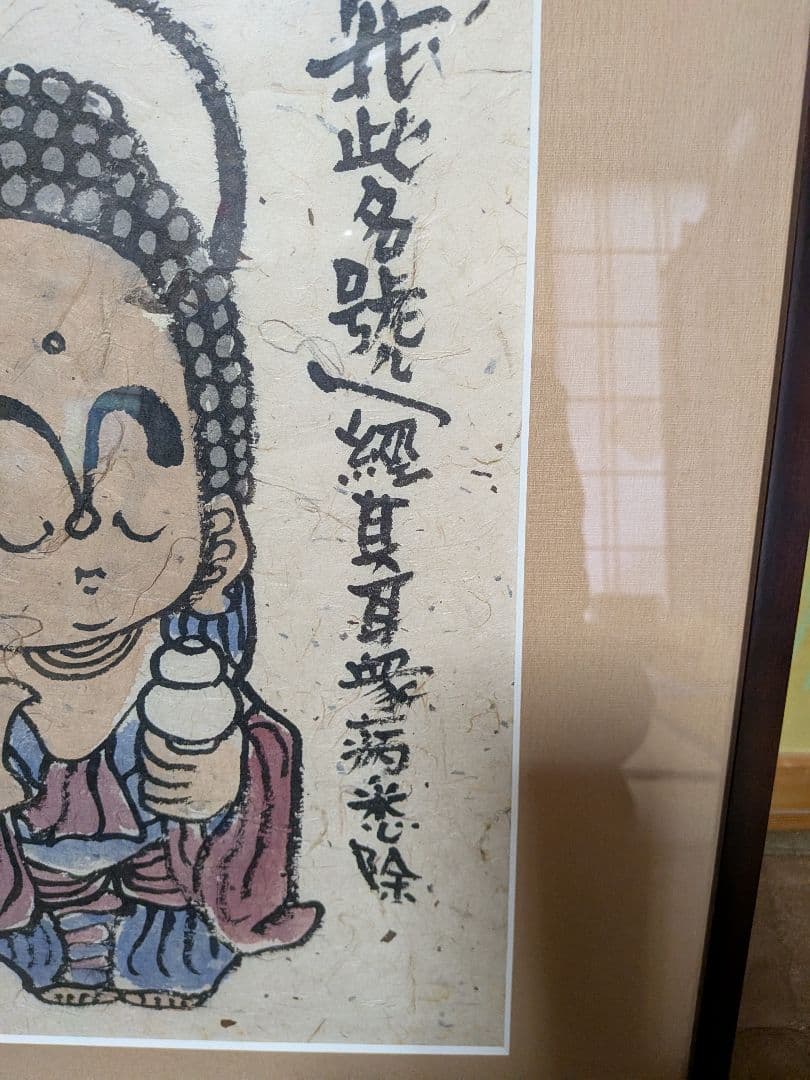 我此名號一經其耳衆病悉除